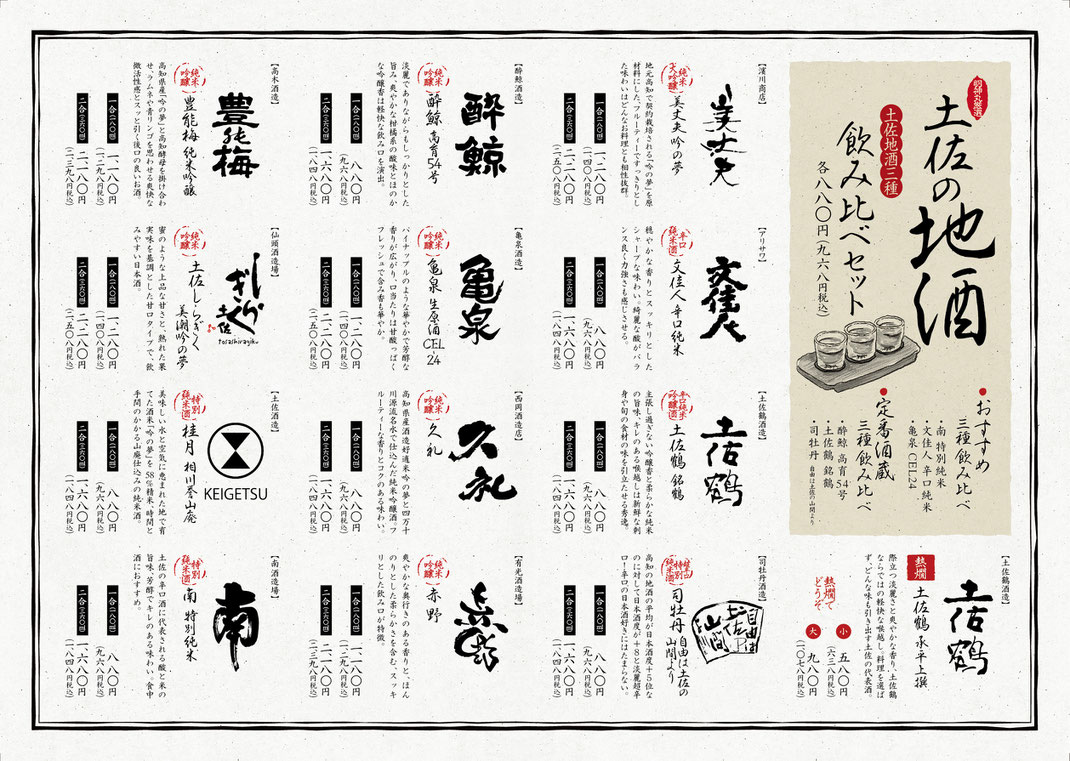 龍神丸厳選
土佐の地酒
土佐地酒三種
飲み比べセット
各八八〇円(九六八円税込)
●おすすめ
三種飲み比べ
・南 特別純米
・文佳人 辛口純米
・亀泉 CEL24
●定番酒蔵
三種飲み比べ
・酔鯨 高育54号
・土佐鶴 銘鶴
・司牡丹 自由は土佐の山間より
【土佐鶴酒造】
土佐鶴
熱燗
土佐鶴 承平上撰
際立つ淡麗さと爽やかな香り、土佐鶴
ならではの軽快な喉越し。料理を選ば
ず、どんな味も引き出す土佐の代表酒。
熱燗で
どうぞ
小 五八〇円
(六三八円税込)
大 九八〇円
(一、〇七八円税込)
【濱川商店】
美丈夫
純米
大吟醸
美丈夫 吟の夢
地元高知で契約栽培される「吟の夢」を原
材料にした、フルーティーですっきりとし
た味わいはどんなお料理とも相性抜群。
一合(一八〇㏄) 一、二八〇円
(一、四〇八円税込)
二合(三六〇㏄) 二、二八〇円
(二、五〇八円税込)
【アリサワ】
文佳人
辛口
純米酒
文佳人 辛口純米
穏やかな香りとスッキリとした
シャープな味わい。綺麗な酸がバラ
ンス良く力強さも感じさせる。
一合(一八〇㏄) 八八〇円
(九六八円税込)
二合(三六〇㏄) 一、六八〇円
(一、八四八円税込)
【土佐鶴酒造】
土佐鶴
辛口純米
吟醸酒
土佐鶴 銘鶴
主張し過ぎない吟醸香と柔らかな純米
の旨味、キレのある喉越しは新鮮な刺
身や旬の食材の味を引立たせる秀逸。
一合(一八〇㏄) 八八〇円
(九六八円税込)
二合(三六〇㏄) 一、六八〇円
(一、八四八円税込)
【司牡丹酒造】
自由は土佐の山間より
特別
純米酒
司牡丹 自由は土佐の
山間より
高知の地酒の平均が日本酒度+5位な
のに対して日本酒度が+8と淡麗超辛
口!辛口の日本酒好きにはたまらない。
一合(一八〇㏄) 八八〇円
(九六八円税込)
二合(三六〇㏄) 一、六八〇円
(一、八四八円税込)
【酔鯨酒造】
酔鯨
純米
吟醸
酔鯨 高育54号
淡麗でありながらもしっかりとした
旨み、爽やかな柑橘系の酸味とほのか
な吟醸香は軽快な飲み口を演出。
一合(一八〇㏄) 八八〇円
(九六八円税込)
二合(三六〇㏄) 一、六八〇円
(一、八四八円税込)
【亀泉酒造】
亀泉
純米
吟醸
亀泉 生原酒 CEL24
パイナップルのような華やかで芳醇な
香りが広がり、口当たりは甘酸っぱく
フレッシュで含み香も華やか。
一合(一八〇㏄)
二合(三六〇㏄) 一、六八〇円
(一、八四八円税込)
【西岡酒造店】
久礼
純米
吟醸
久礼
高知県産酒造好適米吟の夢と四万十
川源流名水で仕込んだ純米吟醸酒。フ
ルーティーな香りとコクのある味わい。
一合(一八〇㏄) 八八〇円
(九六八円税込)
二合(三六〇㏄) 一、六八〇円
(一、八四八円税込)
【有光酒造場】
赤野
純米
吟醸
赤野
爽やかな奥行きのある香りと、ほん
のりとした柔らかさを含む、スッキ
リとした飲み口が特徴。
一合(一八〇㏄) 一、一八〇円
(一、二九八円税込)
二合(三六〇㏄) 二、一八〇円
(二、三九八円税込)
【高木酒造】
豊能梅
純米
吟醸
豊能梅 純米吟醸
高知県産「吟の夢」と高知酵母を掛け合わ
せ、ラムネや青リンゴを思わせる爽快な
微活性感とスッと引く後口の良いお酒。
一合(一八〇㏄) 一、一八〇円
(一、二九八円税込)
二合(三六〇㏄) 二、一八〇円
(二、三九八円税込)
【仙頭酒造場】
土佐しらぎく
tosashiragiku
純米
吟醸
土佐しらぎく
美潮吟の夢
蜜のような上品な甘さと、熟れた果
実味を基調とした甘口タイプで、飲
みやすい日本酒。
一合(一八〇㏄) 一、二八〇円
(一、四〇八円税込)
二合(三六〇㏄) 二、二八〇円
(二、五〇八円税込)
【土佐酒造】
KEIGETSU
特別
純米酒
桂月 相川誉山廃
美味しい水と空気に恵まれた地で育
てた酒米「吟の夢」を58%精米。時間と
手間のかかる山廃仕込みの純米酒。
一合(一八〇㏄) 八八〇円
(九六八円税込)
二合(三六〇㏄) 一、六八〇円
(一、八四八円税込)
【南酒造場】
南
特別
純米酒
南 特別純米
土佐の辛口酒に代表される酸と米の
旨味、芳醇でキレのある味わい。食中
酒におすすめ。
一合(一八〇㏄) 八八〇円
(九六八円税込)
二合(三六〇㏄) 一、六八〇円
(一、八四八円税込)